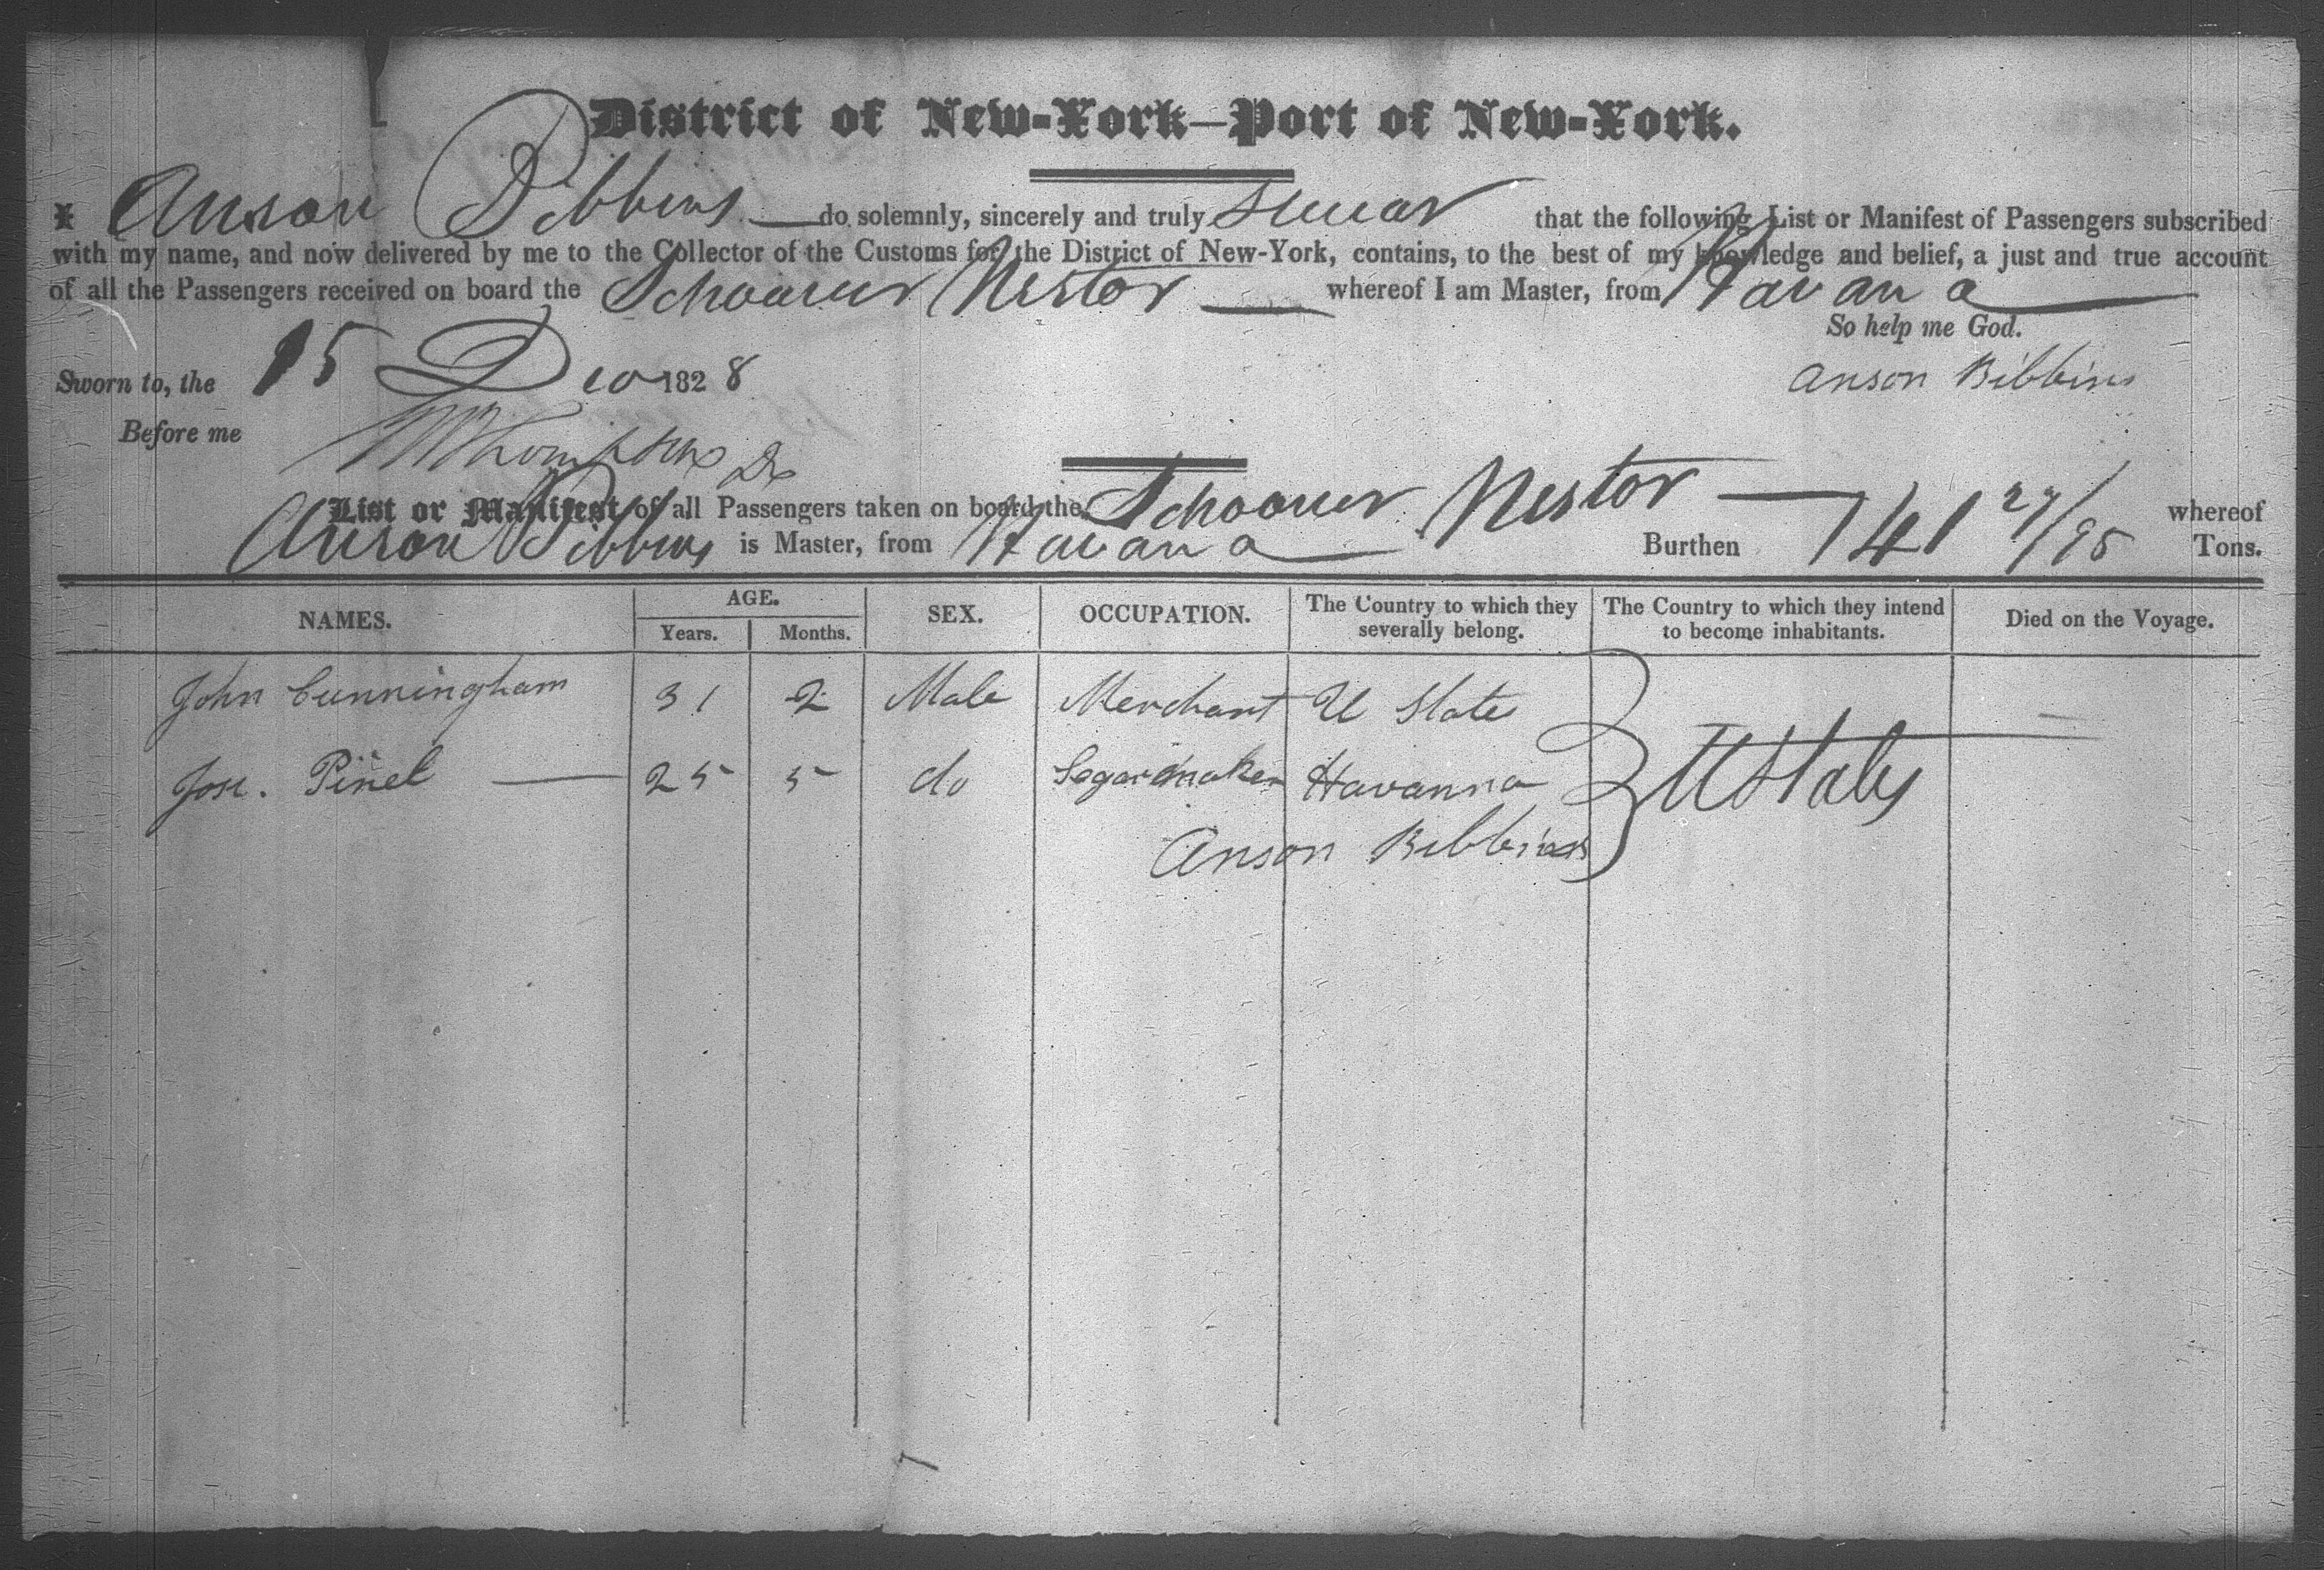 District of New-York—Port of New-York.
I Anson Bibbins do solemnly, sincerely and truly swear that the following List or Manifest of Passengers subscribed
with my name, and now delivered by me to the Collector of the Customs for the District of New-York, contains, to the best of my knowledge and belief, a just and true account
of all the Passengers received on board the Schooner Nestor whereof I am Master, from Havana
So help me God.
Sworn to, the 15 Dec 1828 Anson Bibbins
Before me Thompson
List or Manifest of all Passengers taken on board the Schooner Nestor whereof
Anson Bibbins is Master, from Havana Burthen 141 27/95 Tons.
NAMES. AGE. Years. Months. SEX. OCCUPATION. The Country to which they severally belong. The Country to which they intend to become inhabitants. Died on the Voyage.
John Cunningham 31 2 Male Merchant U States
Jose. Pinel 25 5 do Segarmaker Havanna U States
Anson Bibbins